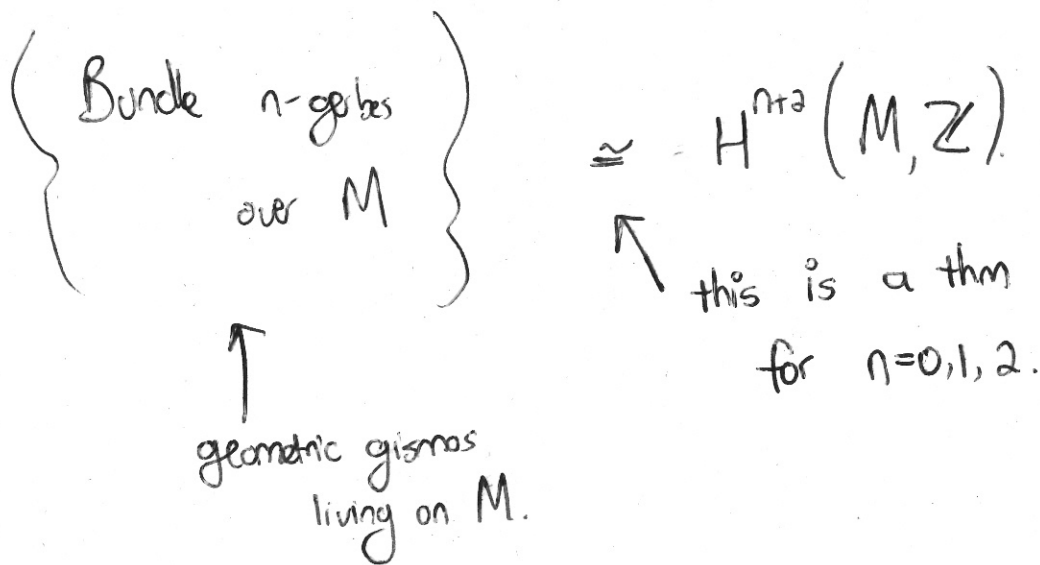 Bundle n-gerbes
over M
≅ H^{n+2}(M, ℤ).
this is a thm
for n=0,1,2.
geometric gismos
living on M.